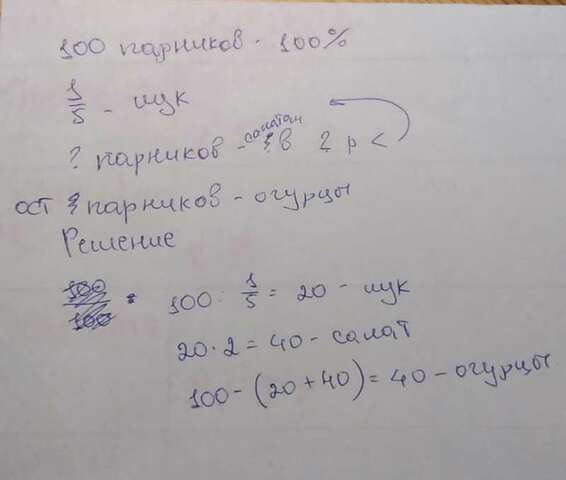 100 парников - 100%
1/5 - лук
? парников - салатом в 2 р <
ост ? парников - огурцы
Решение
100 : 1/5 = 20 - лук
20 · 2 = 40 - салат
100 - (20 + 40) = 40 - огурцы